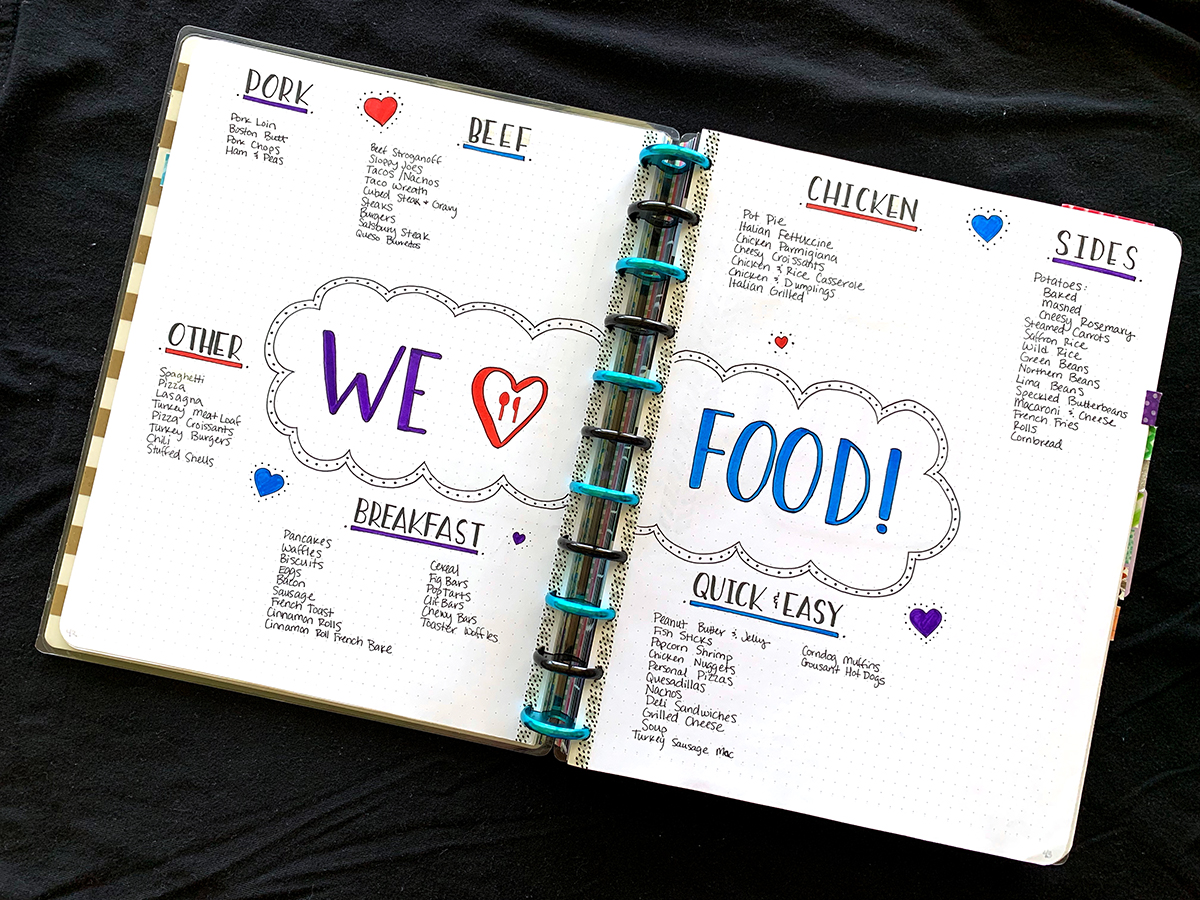 PORK
Pork Loin
Boston Butt
Pork Chops
Ham & Peas
BEEF
Beef Stroganoff
Sloppy Joes
Tacos/Nachos
Taco Wreath
Cubed Steak & Gravy
Steaks
Burgers
Salsbury Steak
Queso Burretos
OTHER
Spaghetti
Pizza
Lasagna
Turkey meat Loaf
Pizza Croissants
Turkey Burgers
Chili
Stuffed Shells
WE
BREAKFAST
Pancakes
Waffles
Biscuits
Eggs
Bacon
Sausage
French Toast
Cinnamon Rolls
Cinnamon Roll French Bake
Cereal
Fig Bars
Pop Tarts
Clif Bars
Chewy Bars
Toaster Waffles
CHICKEN
Pot Pie
Italian Fettuccine
Chicken Parmigiana
Cheesy Croissants
Chicken & Rice Casserole
Chicken & Dumplings
Italian Grilled
SIDES
Potatoes:
Baked
Mashed
Cheesy Rosemary
Steamed Carrots
Saffron Rice
Wild Rice
Green Beans
Northern Beans
Lima Beans
Speckled Butterbeans
Macaroni & Cheese
French Fries
Rolls
Cornbread
FOOD!
QUICK & EASY
Peanut Butter & Jelly
Fish Sticks
Popcorn Shrimp
Chicken Nuggets
Personal Pizzas
Quesadillas
Nachos
Deli Sandwiches
Grilled Cheese
Soup
Turkey Sausage Mac
Corndog Muffins
Crousant Hot Dogs
43